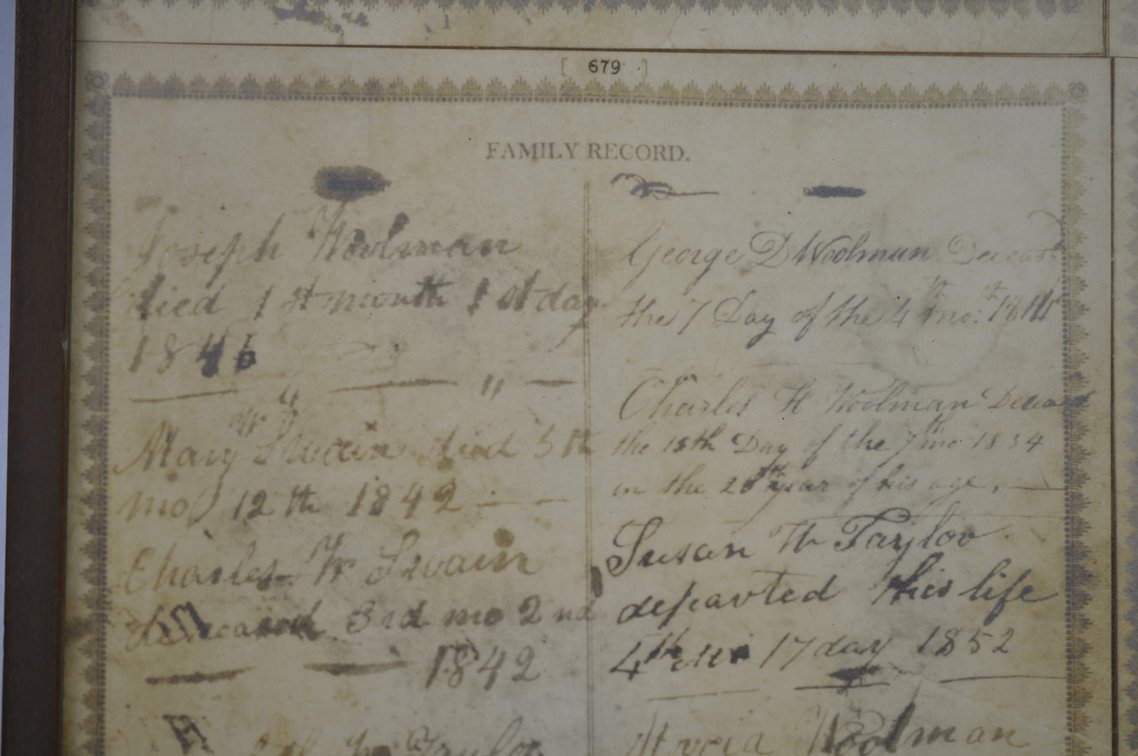 [ 679 ]
FAMILY RECORD.
Joseph Woolman
died 1st month 1st day
1846
Mary W Swain died 5th
mo 12th 1842
Charles W Swain
deceased 3rd mo 2nd
1842
W Taylor
George D Woolman Deceas
the 7 Day of the 4th mo. 18
Charles H Woolman Deceased
the 18th Day of the 7th mo 1834
in the 26th year of his age.
Susan W Taylor
departed this life
4th 17 day 1852
Woolman